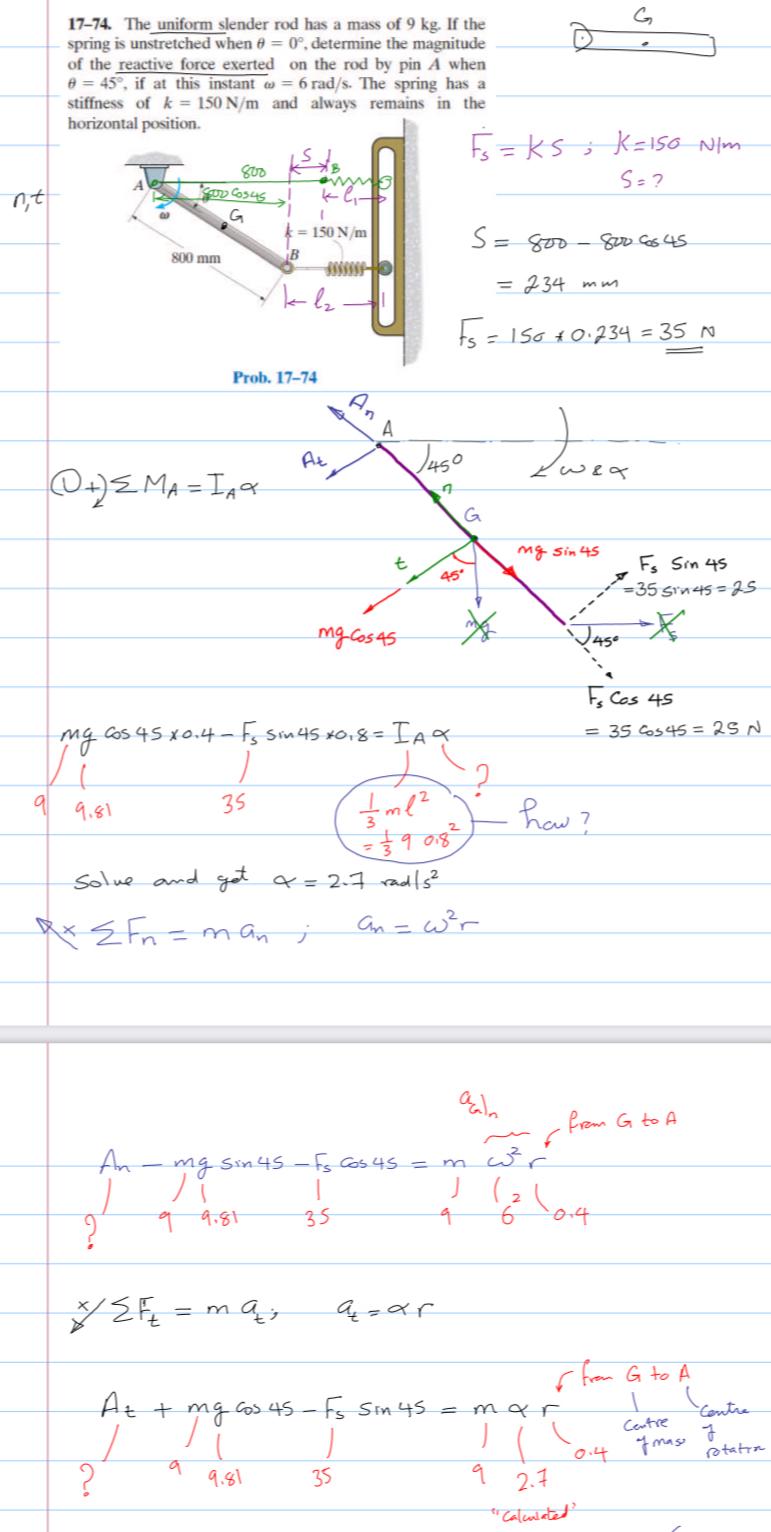 G
17–74. The uniform slender rod has a mass of 9 kg. If the
spring is unstretched when θ = 0°, determine the magnitude
of the reactive force exerted on the rod by pin A when
θ = 45°, if at this instant ω = 6 rad/s. The spring has a
stiffness of k = 150 N/m and always remains in the
horizontal position.
n,t
S
800
B
A
800 cos45
l₁
ω
G
k = 150 N/m
800 mm
B
l₂
Prob. 17–74
Fs = KS ; K=150 N/m
S = ?
S = 800 - 800 cos 45
= 234 mm
Fs = 150 * 0.234 = 35 N
An
A
At
45°
ω & α
+) Σ MA = IA α
n
G
t
45°
mg sin 45
mg
mg cos 45
Fs Sin 45
= 35 sin 45 = 25
Fs
45°
Fs Cos 45
= 35 Cos 45 = 25 N
mg cos 45 x 0.4 - Fs sin 45 * 0.8 = IA α
9 9.81 35 ?
1/3 ml²
= 1/3 9 0.8²
how?
Solve and get α = 2.7 rad/s²
Σ Fn = m an ; an = ω² r
aG)n
from G to A
An - mg sin 45 - Fs cos 45 = m ω² r
? 9 9.81 35 9 6² 0.4
Σ Ft = m at ; at = α r
from G to A
At + mg cos 45 - Fs sin 45 = m α r
centre of mass
centre of rotation
? 9 9.81 35 9 2.7 0.4
"Calculated"